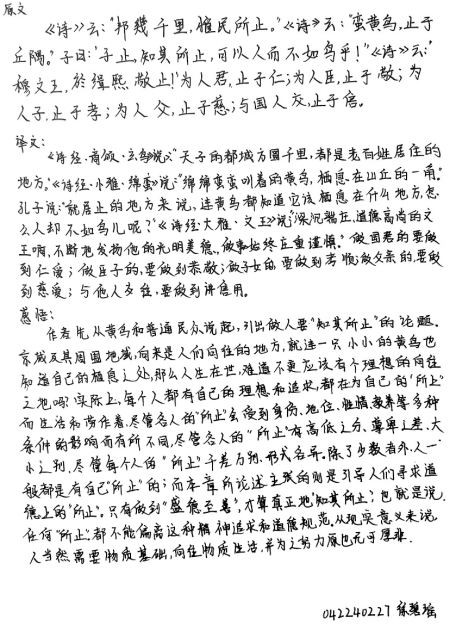 原文
《诗》云:"邦幾千里,惟民所止。"《诗》云:"蛮黄鸟,止于
丘隅。"子曰:'子止,知其所止,可以人而不如鸟乎!"《诗》云:'
穆文王,於缉熙敬止!'为人君,止于仁;为人臣,止于敬;为
人子,止于孝;为人父,止于慈;与国人交,止于信。
译文:
《诗经·商颂·玄鸟》说:"天子的都城方圆千里,都是老百姓居住的
地方。"《诗经·小雅·绵蛮》说:"绵绵蛮蛮叫着的黄鸟,栖息在山丘的一角。"
孔子说:"就居止的地方来说,连黄鸟都知道它该栖息在什么地方,怎
么人却不如鸟儿呢?"《诗经·大雅·文王》说:"深沉端庄,道德高尚的文
王啊,不断地发扬他的光明美德,做事始终庄重谨慎。"做国君的要做
到仁爱;做臣子的,要做到恭敬;做子女的,要做到孝顺;做父亲的,要做
到慈爱;与他人交往,要做到讲信用。
感悟:
作者先从黄鸟和普通民众说起,引出做人要"知其所止"的论题。
京城及其周围地域,向来是人们向往的地方,就连一只小小的黄鸟也
知道自己的栖息之处,那么人生在世,难道不更应该有个理想的向往
之地吗?实际上,每个人都有自己的理想和追求,都在为自己的"所止"
而生活和劳作着,尽管各人的"所止"会受到身份、地位、性情、教养等多种
条件的影响而有所不同,尽管各人的"所止"有高低之分、尊卑之差、大
小之别,尽管每个人的"所止"千差万别、形式各异,除了少数者外,人一
般都是有自己"所止"的;而本章所论述主张的则是引导人们寻求道
德上的"所止"。只有做到"盛德至善",才算真正地"知其所止";也就是说,
任何"所止"都不能偏离这种精神追求和道德规范,从现实意义来说,
人当然需要物质基础,向往物质生活,并为之努力原也无可厚非.
042240227 徐碧瑶